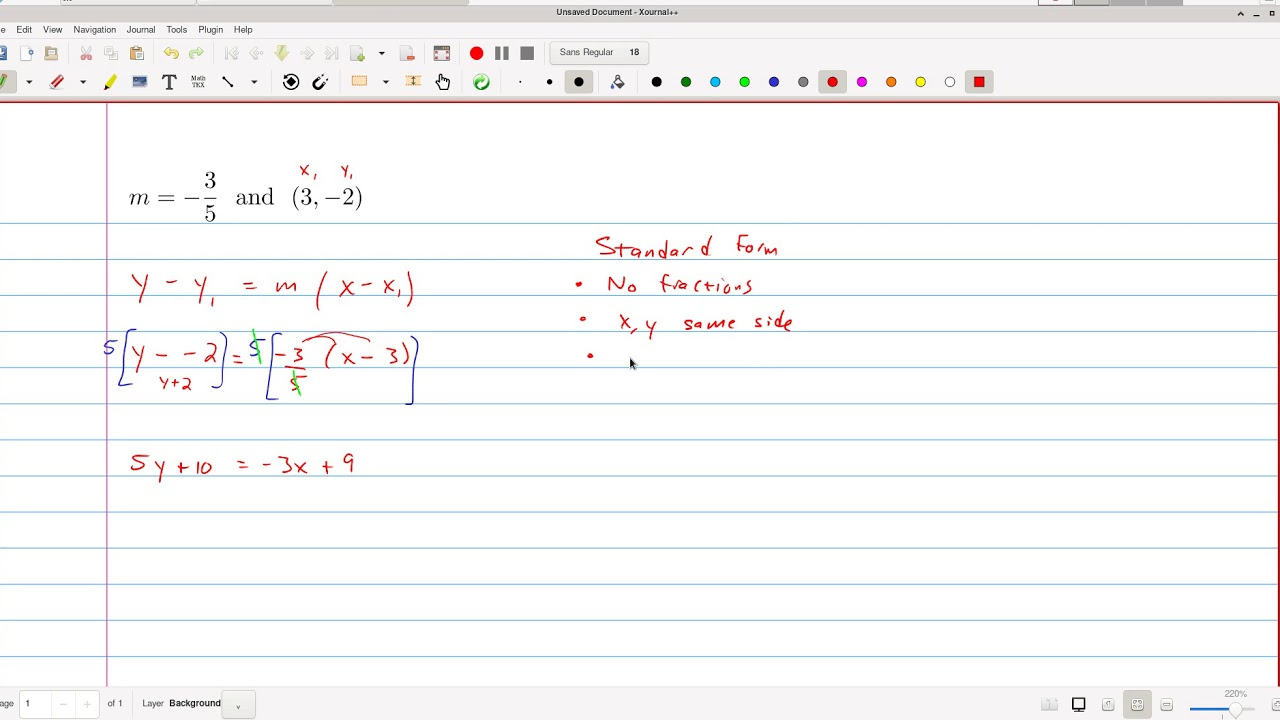 Unsaved Document - Xournal++
Edit View Navigation Journal Tools Plugin Help
T Math TEX
Sans Regular 18
x₁ y₁
m = -3/5 and (3, -2)
Standard Form
y - y₁ = m (x - x₁)
• No fractions
• x, y same side
5[y - - 2] = 5[-3/5 (x - 3)]
•
y+2
5y + 10 = -3x + 9
age 1 - + of 1 Layer Background
220%